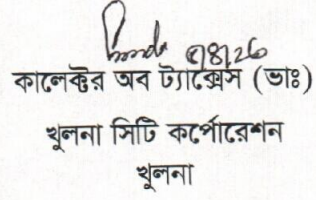 ৫/8/26
কালেক্টর অব ট্যাক্সেস (ভাঃ)
খুলনা সিটি কর্পোরেশন
খুলনা